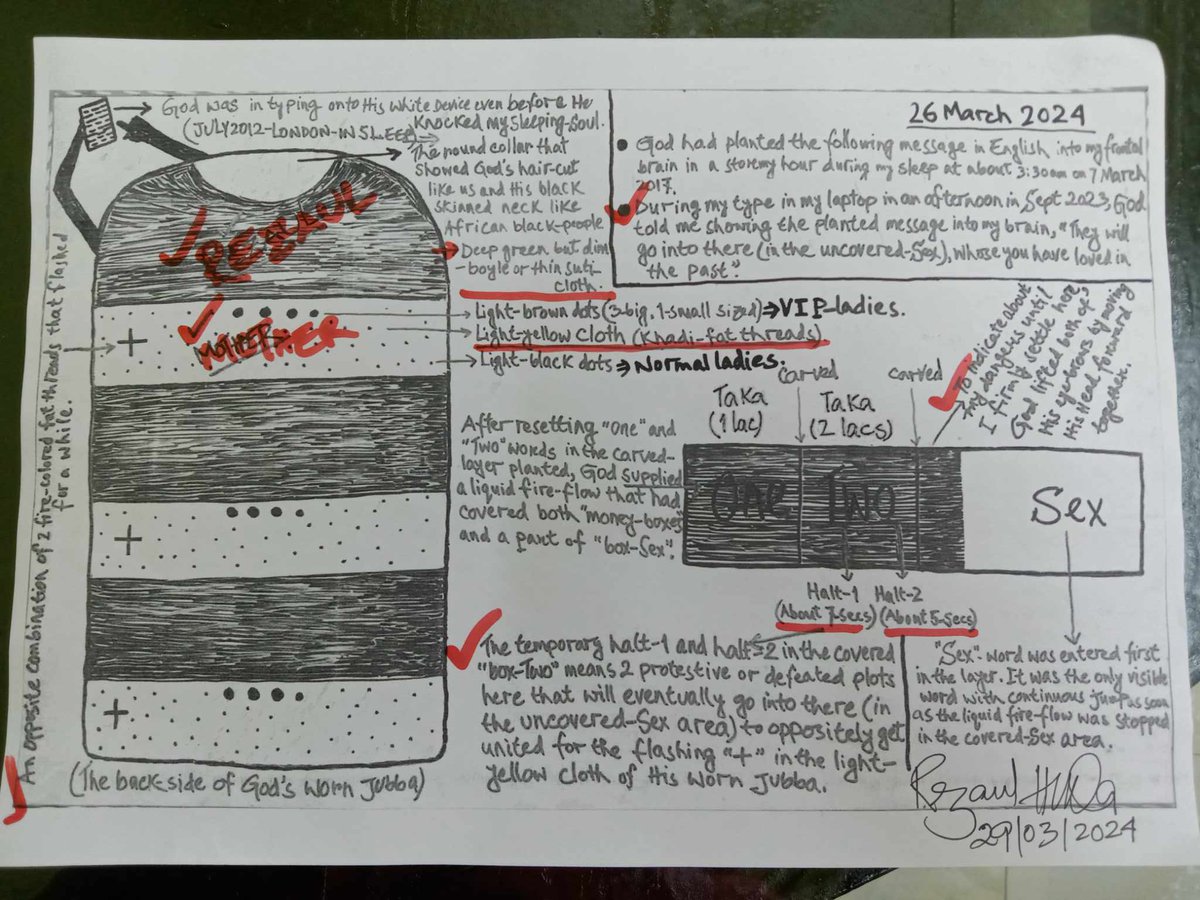 God was in typing onto His white Device even before He
Knocked my sleeping-Soul.
(JULY2012-LONDON-IN SLEEP)
The round collar that
showed God's hair-cut
like us and His black
skinned neck like
African black-people.
Deep green but dim
-boyle or thin suti-
cloth.
26 March 2024
God had planted the following message in English into my frontal
brain in a storemy hour during my sleep at about 3:30am on 7 March
2017.
During my type in my laptop in an afternoon in Sept 2023, God
told me showing the planted message into my brain, "They will
go into there (in the uncovered-Sex), whose you have loved in
the past".
REZAUL
MOTHER
Light-brown dots (3-big, 1-small sized) ⇒ VIP-ladies.
Light-yellow cloth (Khadi-fat threads)
Light-black dots ⇒ Normal ladies.
An opposite combination of 2 fire-colored fat threads that flashed
for a while.
+
+
+
(The back side of God's worn Jubba)
After resetting "One" and
"Two" words in the carved-
layer planted, God supplied
a liquid fire-flow that had
covered both "money-boxes"
and a part of "box-Sex".
carved
carved
Taka
(1 lac)
Taka
(2 lacs)
To indicate about
my danger-us until
I firmly settle here,
God lifted both of
His eye-brows by moving
His Head forward
together.
One
Two
Sex
Halt-1
(About 7-secs)
Halt-2
(About 5-secs)
The temporary halt-1 and halt-2 in the covered
"box-Two" means 2 protestive or defeated plots
here that will eventually go into there (in
the uncovered-Sex area) to oppositely get
united for the flashing "+" in the light-
yellow cloth of His worn Jubba.
"Sex"-word was entered first
in the layer. It was the only visible
word with continuous jump as soon
as the liquid fire-flow was stopped
in the covered-Sex area.
Rezaul Huda
29/03/2024